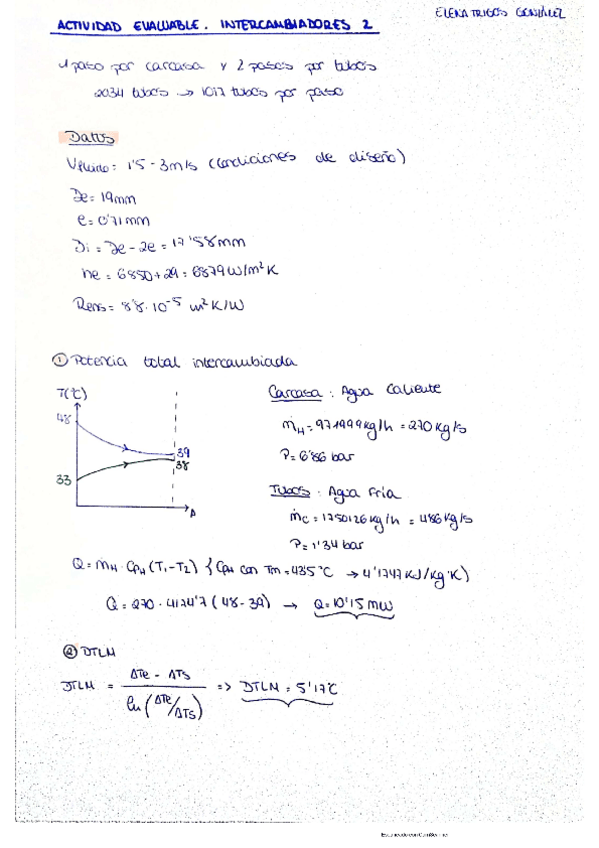 ELENA TRIGOS GONZÁLEZ
ACTIVIDAD EVALUABLE. INTERCAMBIADORES 2
1 paso por carcasa y 2 pasos por tubos
2034 tubos → 1017 tubos por paso
Datos
Vfluido = 1'5 - 3m/s (condiciones de diseño)
De = 19mm
e = 0'71 mm
Di = De - 2e = 17'58mm
he = 6850 + 29 = 6879 W/m² K
Rens = 8'8·10⁻⁵ m² K/W
① Potencia total intercambiada
T(ºC)
48
39
38
33
A
Carcasa : Agua Caliente
ṁH = 971999 kg/h = 270 kg/s
P = 6'86 bar
Tubos : Agua Fría
ṁC = 1750126 kg/h = 486 kg/s
P = 1'34 bar
Q = ṁH · CpH (T1 - T2) { CpH con Tm = 43'5 °C → 4'1747 KJ/kg·K)
Q = 270 · 4174'7 (48 - 39) → Q = 10'15 MW
② DTLM
DTLM = ΔTe - ΔTs / ln (ΔTe/ΔTs) => DTLM = 5'17ºC
Escaneado con CamScanner